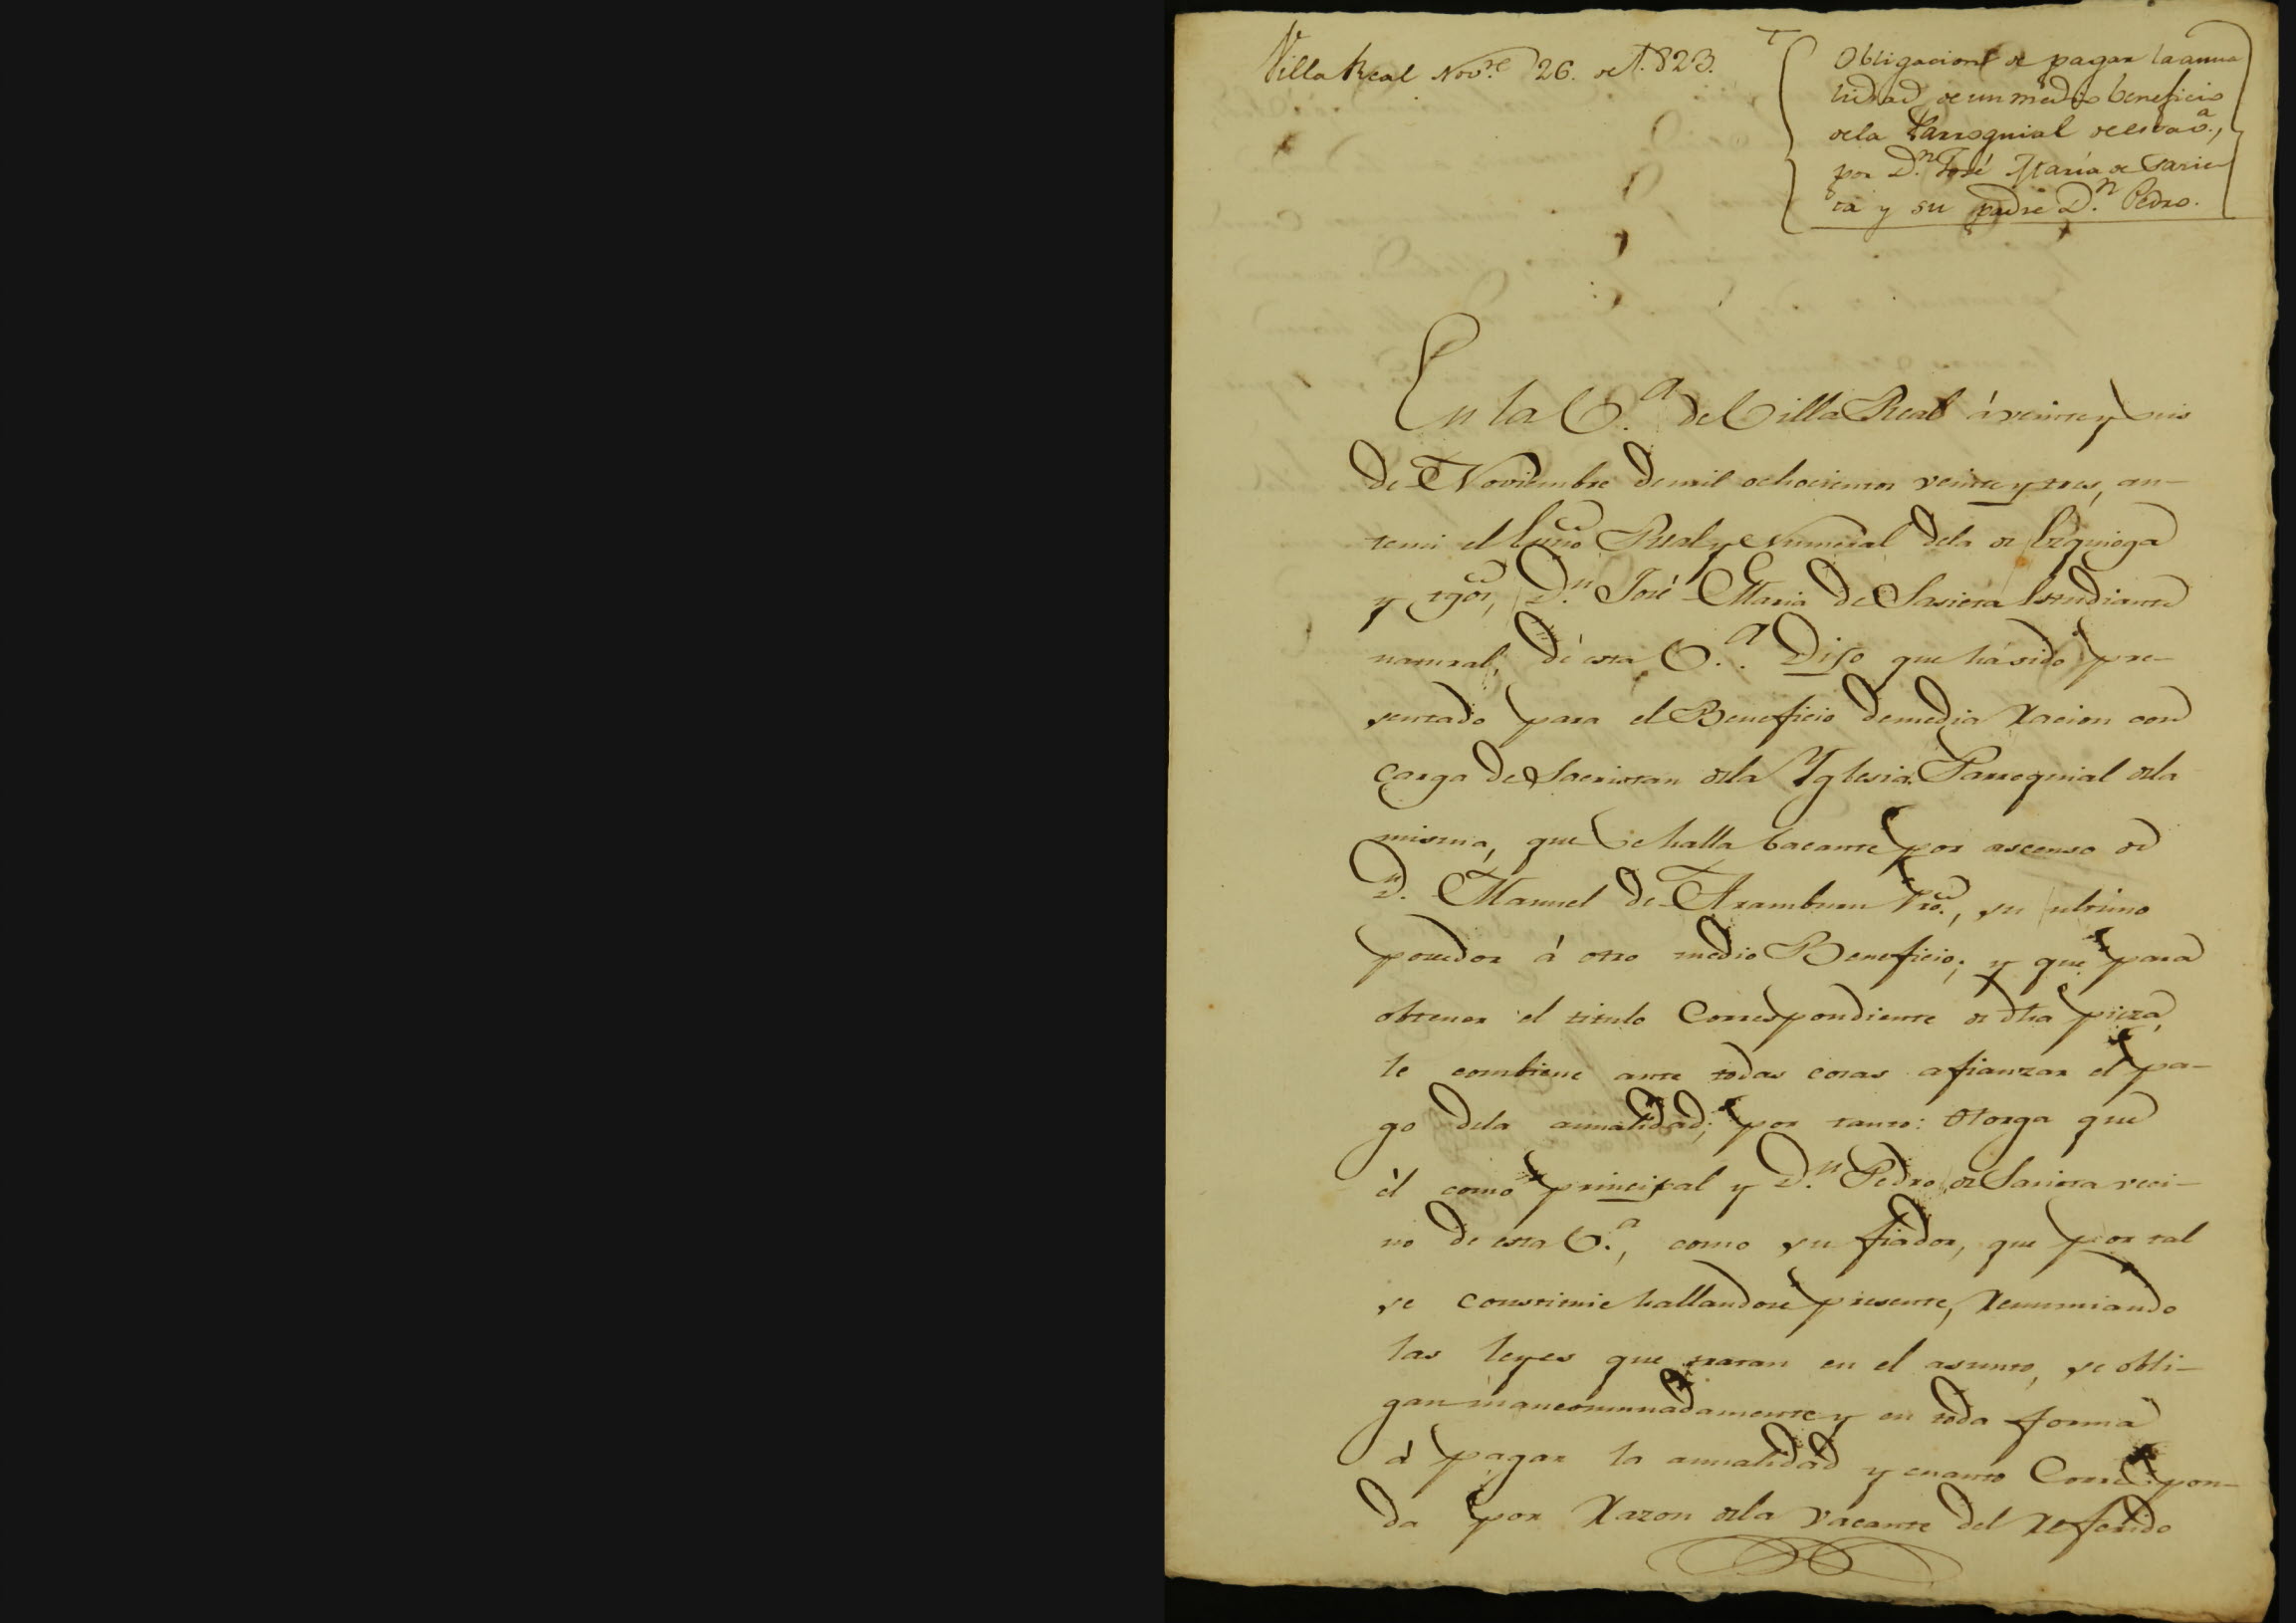 Villa Real Nov.re 26. de 1.823.
Obligacion de pagar la anua
lidad de un medio beneficio
de la Parroquial de esta v.a,
por D.n José María de Sasie
ta y su padre D.n Pedro.
En la V.a de Villa Real á veinte y seis
de Noviembre de mil ochocientos veinte y tres, an-
temi el Esno Real y Numeral dela de Ezquioga
y tgos, D.n José Maria de Sasieta Estudiante
natural, de esta V.a Dijo que há sido pre-
sentado para el Beneficio de media racion con
carga de Sacristan dela Yglesia Parroquial dela
misma, que se halla bacante por ascenso de
D.n Manuel de Aramburu Pro., su ultimo
poseedor á otro medio Beneficio; y que para
obtener el titulo Correspondiente de dha pieza,
le combiene ante todas cosas afianzar el pa-
go dela annalidad; por tanto: Otorga que
él como principal y D.n Pedro de Sasieta veci-
no de esta V.a, como su fiador, que por tal
se constituie hallandose presente, renunciando
las leyes que tratan en el asunto, se obli-
gan mancomunadamente y en toda forma
á pagar la annalidad y cuanto Correspon-
da por razon dela vacante del referido